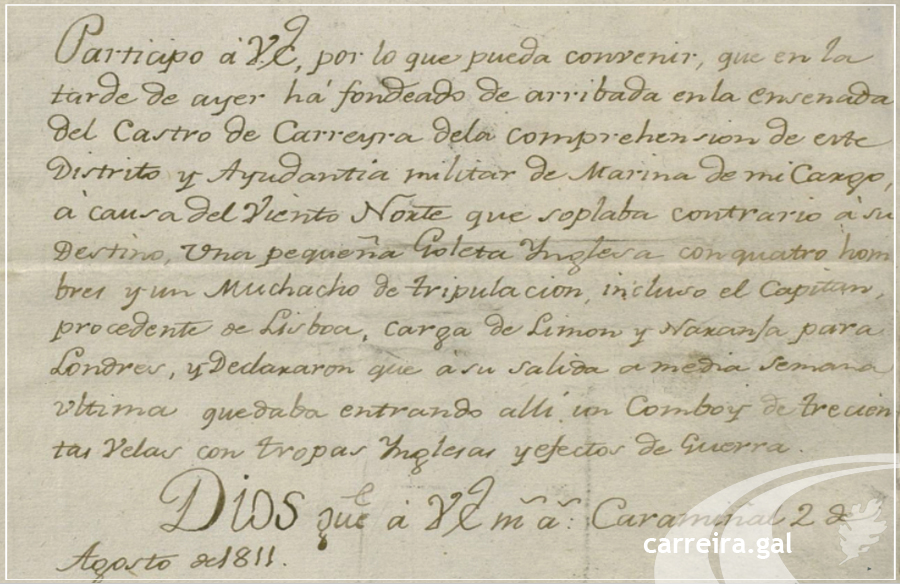 Participo à V.E., por lo que pueda convenir, que en la
tarde de ayer há fondeado de arribada en la ensenada
del Castro de Carreyra dela comprehension de este
Distrito y Ayudantia militar de Marina de mi Cargo,
à causa del Viento Norte que soplaba contrario à su
Destino, Una pequeña Goleta Ynglesa con quatro hom
bres y un Muchacho de tripulacion, incluso el Capitan,
procedente de Lisboa, carga de Limon y Naranja para
Londres, y Declararon que a su salida a media semana
ultima quedaba entrando allí un Comboy de trecien
tas Velas con tropas Ynglesas y efectos de Guerra.
Dios gue à V.E. m.s a.s: Caramiñal 2 de
Agosto de 1811.
carreira.gal